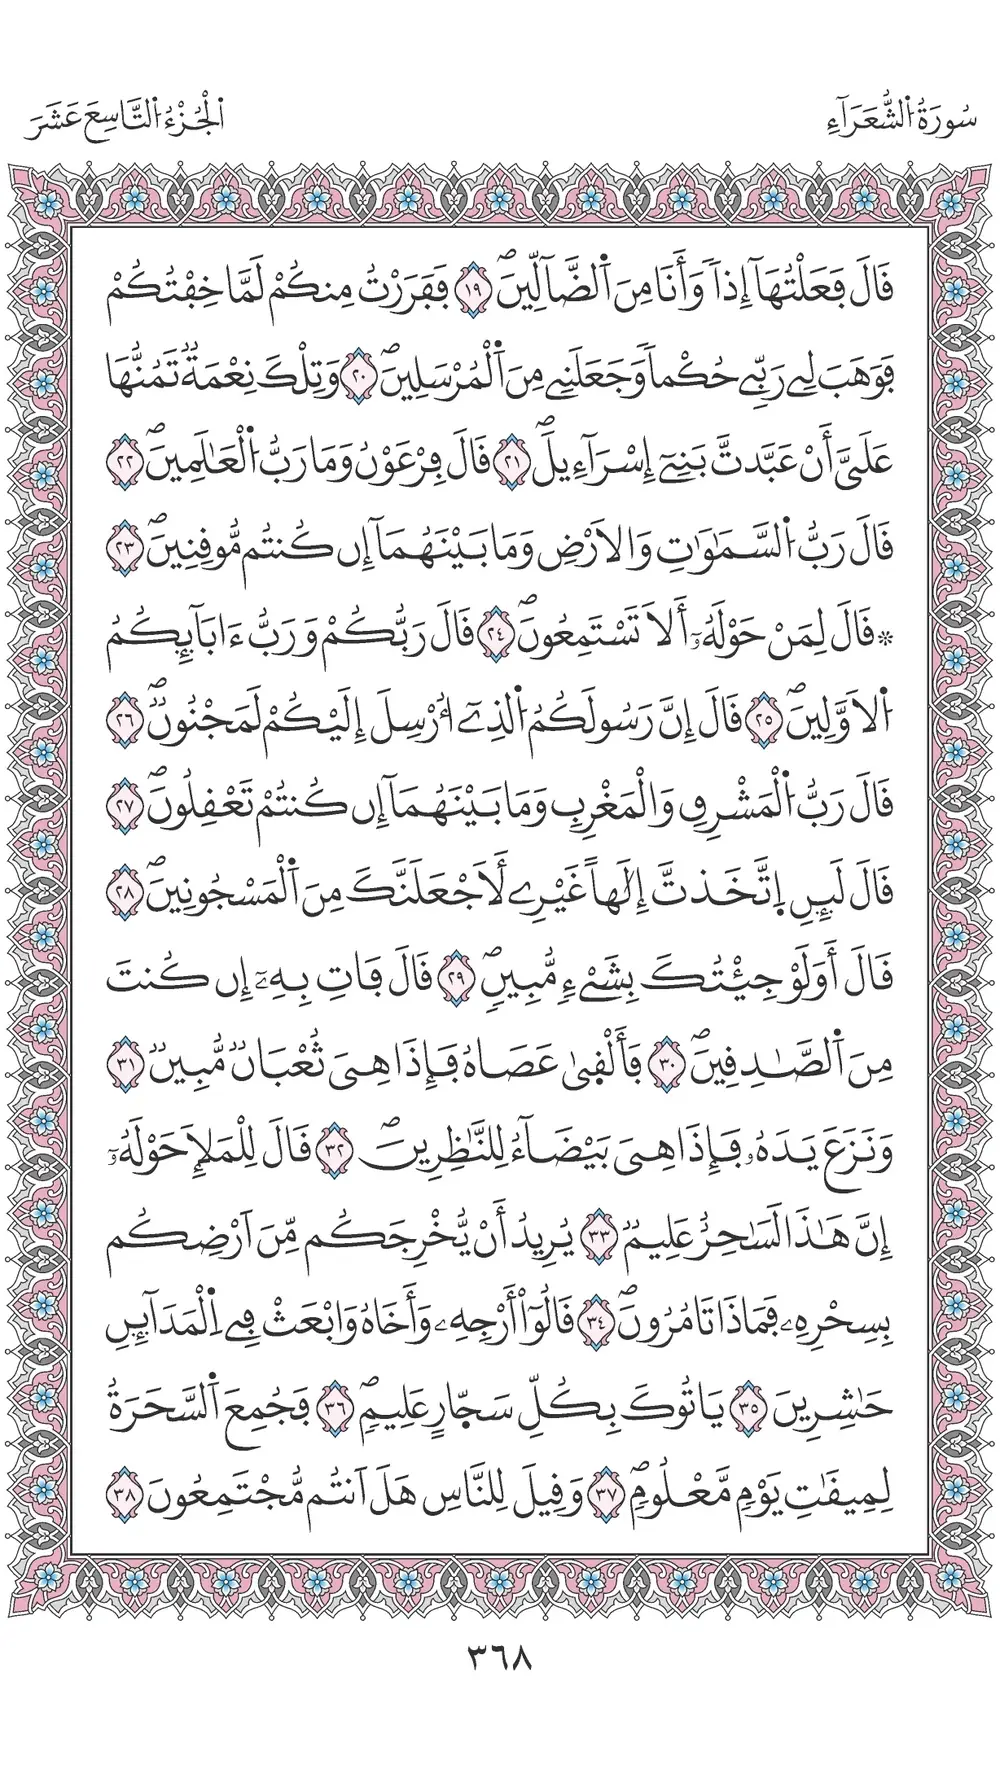 سُورَةُ اُ۬لشُّعَرَآءِ
اَ۬لْجُزْءُ اُ۬لتَّاسِعَ عَشَرَ
قَالَ فَعَلْتُهَآ إِذاٗ وَأَنَا مِنَ اَ۬لضَّآلِّينَۖ ١٩ فَفَرَرْتُ مِنكُمْ لَمَّا خِفْتُكُمْ
فَوَهَبَ لِے رَبِّے حُكْماٗ وَجَعَلَنِے مِنَ اَ۬لْمُرْسَلِينَۖ ٢٠ وَتِلْكَ نِعْمَةٞ تَمُنُّهَا
عَلَيَّ أَنْ عَبَّدتَّ بَنِےٓ إِسْرَآءِيلَۖ ٢١ قَالَ فِرْعَوْنُ وَمَا رَبُّ اُ۬لْعَٰلَمِينَۖ ٢٢
قَالَ رَبُّ اُ۬لسَّمَٰوَٰتِ وَالَارْضِ وَمَا بَيْنَهُمَآ إِن كُنتُم مُّوقِنِينَۖ ٢٣
۞ قَالَ لِمَنْ حَوْلَهُۥٓ أَلَا تَسْتَمِعُونَۖ ٢٤ قَالَ رَبُّكُمْ وَرَبُّ ءَابَآئِكُمُ
اُ۬لَاوَّلِينَۖ ٢٥ قَالَ إِنَّ رَسُولَكُمُ اُ۬لذِےٓ أُرْسِلَ إِلَيْكُمْ لَمَجْنُونٞۖ ٢٦
قَالَ رَبُّ اُ۬لْمَشْرِقِ وَالْمَغْرِبِ وَمَا بَيْنَهُمَآ إِن كُنتُمْ تَعْقِلُونَۖ ٢٧
قَالَ لَئِنِ اِ۪تَّخَذتَّ إِلَٰهاً غَيْرِے لَأَجْعَلَنَّكَ مِنَ اَ۬لْمَسْجُونِينَۖ ٢٨
قَالَ أَوَلَوْ جِئْتُكَ بِشَےْءٖ مُّبِينٖۖ ٢٩ قَالَ فَاتِ بِهِۦٓ إِن كُنتَ
مِنَ اَ۬لصَّٰدِقِينَۖ ٣٠ فَأَلْقَىٰ عَصَاهُ فَإِذَا هِىَ ثُعْبَانٞ مُّبِينٞ ٣١
وَنَزَعَ يَدَهُۥ فَإِذَا هِىَ بَيْضَآءُ لِلنَّٰظِرِينَۖ ٣٢ قَالَ لِلْمَلَإِ حَوْلَهُۥٓ
إِنَّ هَٰذَا لَسَٰحِرٌ عَلِيمٞ ٣٣ يُرِيدُ أَنْ يُّخْرِجَكُم مِّنَ اَرْضِكُم
بِسِحْرِهِۦ فَمَاذَا تَامُرُونَۖ ٣٤ قَالُوٓاْ أَرْجِهِۦ وَأَخَاهُ وَابْعَثْ فِے اِ۬لْمَدَآئِنِ
حَٰشِرِينَ ٣٥ يَاتُوكَ بِكُلِّ سَحّ۪ارٍ عَلِيمٖۖ ٣٦ فَجُمِعَ اَ۬لسَّحَرَةُ
لِمِيقَٰتِ يَوْمٖ مَّعْلُومٖۖ ٣٧ وَقِيلَ لِلنَّاسِ هَلَ اَنتُم مُّجْتَمِعُونَ ٣٨
٣٦٨